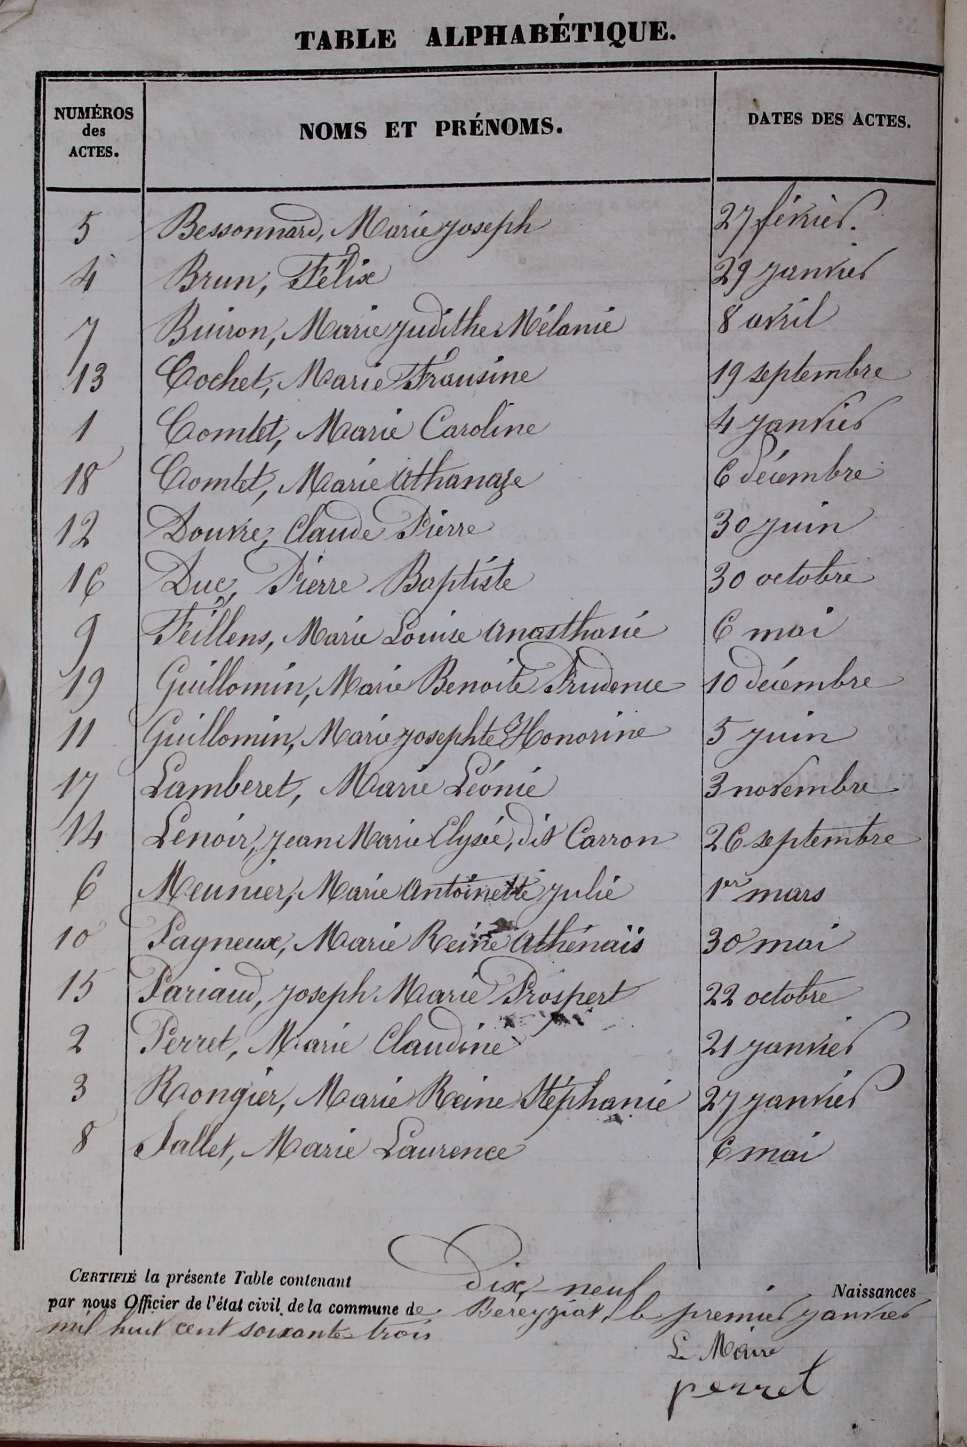 TABLE ALPHABÉTIQUE.
NUMÉROS des ACTES. NOMS ET PRÉNOMS. DATES DES ACTES.
5 Bessonnard, Marie Joseph 27 février.
4 Brun, Félix 29 janvier
7 Buiron, Marie Judithe Mélanie 8 avril
13 Cochet, Marie Frausine 19 septembre
1 Comtet, Marie Caroline 4 janvier
18 Comtet, Marie Athanaze 6 décembre
12 Douvre, Claude Pierre 30 juin
16 Duc, Pierre Baptiste 30 octobre
9 Feillens, Marie Louise Anasthasie 6 mai
19 Guillomin, Marie Benoite Prudence 10 décembre
11 Guillomin, Marie Josephte Honorine 5 juin
17 Lamberet, Marie Léonie 3 novembre
14 Lenoir, Jean Marie Elysée, dit Carron 26 septembre
6 Meunier, Marie Antoinette Julie 1er mars
10 Pagneux, Marie Reine Athénaïs 30 mai
15 Pariaud, Joseph Marie Prospert 22 octobre
2 Perret, Marie Claudine 21 janvier
3 Rongier, Marie Reine Stéphanie 27 janvier
8 Sallet, Marie Laurence 6 mai
CERTIFIÉ la présente Table contenant Dix-neuf Naissances
par nous Officier de l'état civil de la commune de Béreyziat, le premier janvier
mil huit cent soixante trois
Le Maire
perret